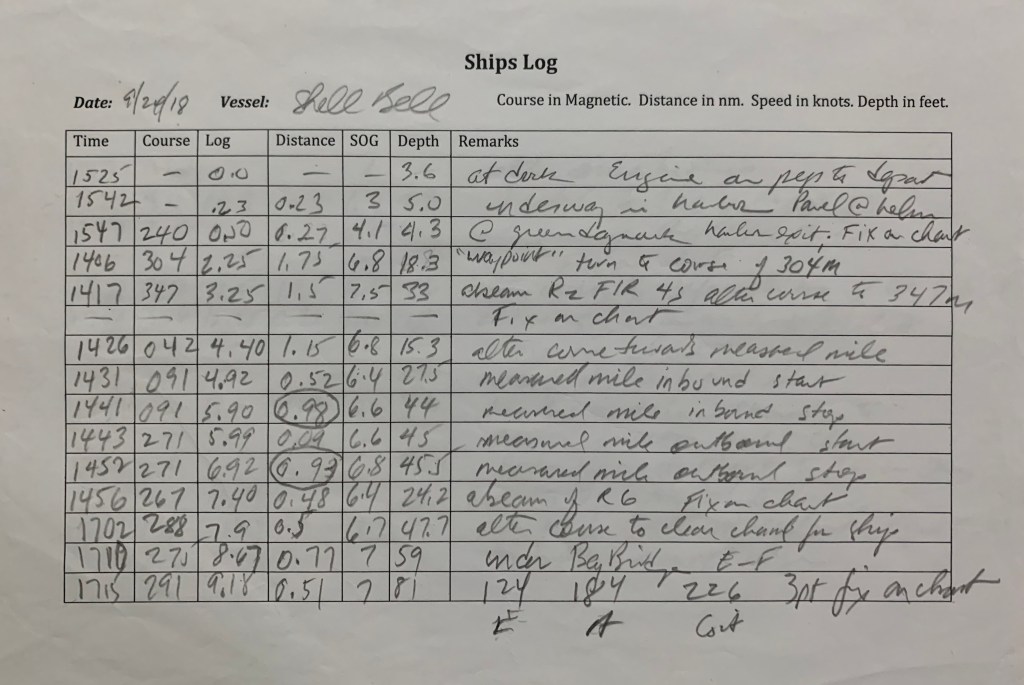 Ships Log
Date: 9/24/18 Vessel: Shell Bell Course in Magnetic. Distance in nm. Speed in knots. Depth in feet.
Time Course Log Distance SOG Depth Remarks
1525 — 0.0 — — 3.6 at dock Engine on prep to depart
1542 - .23 0.23 3 5.0 underway in harbor Pavel @ helm
1547 240 0.50 0.27 4.1 4.3 @ green daymark harbor exit, Fix on chart
1406 304 2.25 1.75 6.8 18.3 "waypoint" turn to course of 304M
1417 347 3.25 1.5 7.5 33 abeam R2 FlR 4s alter course to 347M
— — — — — — Fix on chart
1426 042 4.40 1.15 6.8 15.3 alter course towards measured mile
1431 091 4.92 0.52 6.4 27.5 measured mile inbound start
1441 091 5.90 0.98 6.6 44 measured mile inbound stop
1443 271 5.99 0.09 6.6 45 measured mile outbound start
1452 271 6.92 0.93 6.8 45.5 measured mile outbound stop
1456 267 7.40 0.48 6.4 24.2 abeam of R6 Fix on chart
1702 288 7.9 0.5 6.7 47.7 alter course to clear chanl for ships
1710 275 8.67 0.77 7 59 under Bay Bridge E-F
1715 291 9.18 0.51 7 81 124 184 226 3pt fix on chart
E A